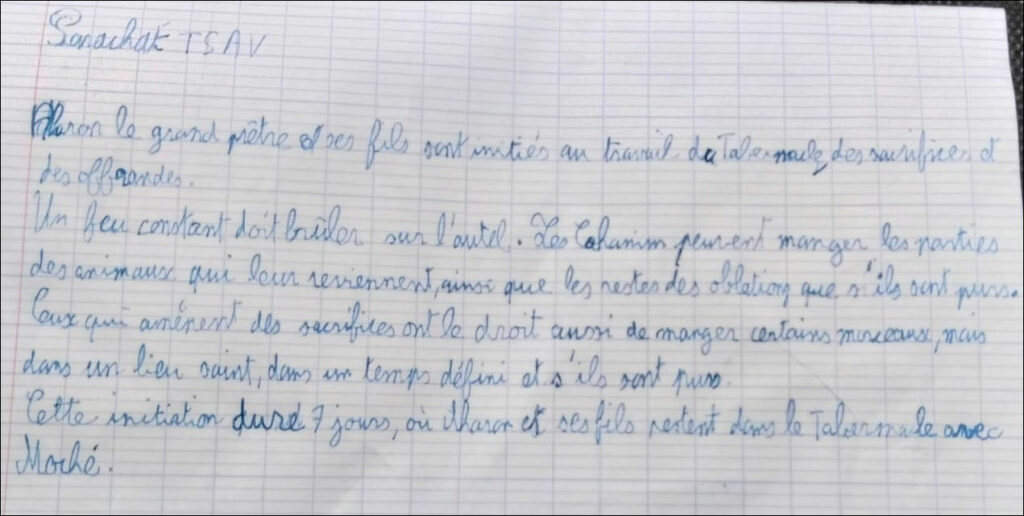 Parachat TSAV
Aharon le grand prêtre et ses fils sont initiés au travail du Tabernacle, des sacrifices et
des offrandes.
Un feu constant doit brûler sur l'autel. Les Cohanim peuvent manger les parties
des animaux qui leur reviennent, ainsi que les restes des oblations que s'ils sont purs.
Ceux qui amènent des sacrifices ont le droit aussi de manger certains morceaux, mais
dans un lieu saint, dans un temps défini et s'ils sont purs.
Cette initiation dure 7 jours, où Aharon et ses fils restent dans le Tabernacle avec
Moché.